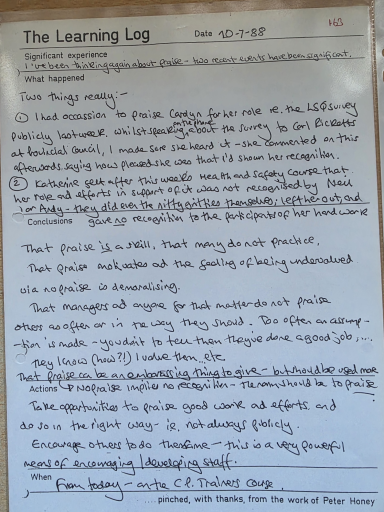 163
The Learning Log Date 20-7-88
Significant experience
I've been thinking again about praise - two recent events have been significant.
What happened
Two things really:-
① I had occassion to praise Carolyn for her role re. the LSQ survey
on the phone
publicly last week. Whilst speaking, about the survey to Carl Ricketts
at Council, I made sure she heard it - she commented on this
afterwards saying how pleased she was that I'd shown her recognition.
② Katherine felt after this weeks Health and Safety Course that
her role and efforts in support of it was not recognised by Neil
or Andy - they did even the nitty gritties themselves, left her out, and
Conclusions gave no recognition to the participants of her hard work
That praise is a skill, that many do not practice.
That praise motivates and the feeling of being undervalued
via no praise is demoralising.
That managers and anyone for that matter do not praise
others as often or in the way they should. Too often an assump-
-tion is made - you don't to tell them they've done a good job, ...
they know (how?!) I value them.. etc
That praise can be an embarrassing thing to give - but should be used more
Actions No praise implies no recognition - the norm should be to praise
Take opportunities to praise good work and efforts, and
do so in the right way - ie, not always publicly.
Encourage others to do the same - this is a very powerful
means of encouraging / developing staff.
When
From today - on the C.P. Trainers Course.
.... pinched, with thanks, from the work of Peter Honey